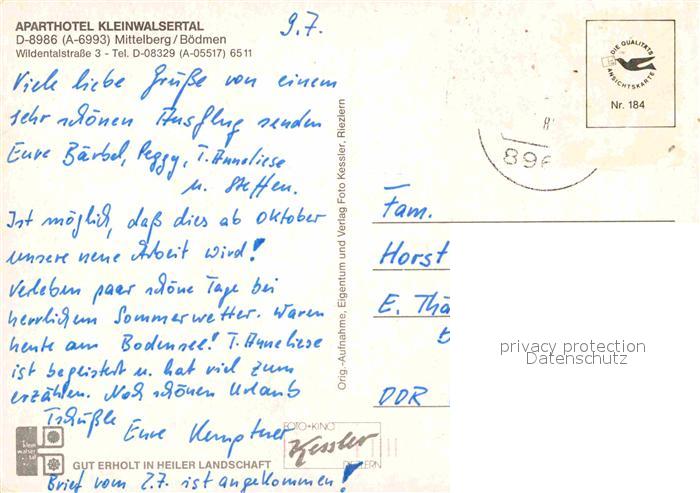 APARTHOTEL KLEINWALSERTAL
D-8986 (A-6993) Mittelberg/Bödmen
Wildentalstraße 3 - Tel. D-08329 (A-05517) 6511
9.7.
Viele liebe Grüße von einem
sehr schönen Ausflug senden
Eure Bärbel, Peggy, T. Anneliese
u. Steffen.
Ist möglich, daß dies ab Oktober
unsere neue Arbeit wird!
Verleben paar schöne Tage bei
herrlichem Sommerwetter. Waren
heute am Bodensee! T. Anneliese
ist begeistert u. hat viel zum
erzählen. Noch schönen Urlaub
Tschüßle
Eure Kemptner
klein
walser
tal
GUT ERHOLT IN HEILER LANDSCHAFT
Brief vom 2.7. ist angekommen!
FOTO+KINO
Kessler
RIEZLERN
Orig.-Aufnahme, Eigentum und Verlag Foto Kessler, Riezlern
DIE QUALITÄTS
ANSICHTSKARTE
Nr. 184
896
Fam.
Horst
E. Thä
DDR
privacy protection
Datenschutz